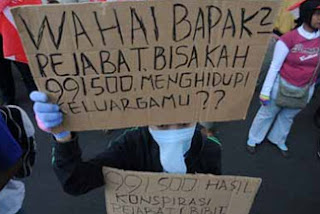 WAHAI BAPAK2
PEJABAT. BISAKAH
991500. MENGHIDUPI
KELUARGAMU ??
991500 HASIL
KONSPIRASI
PEJABAT